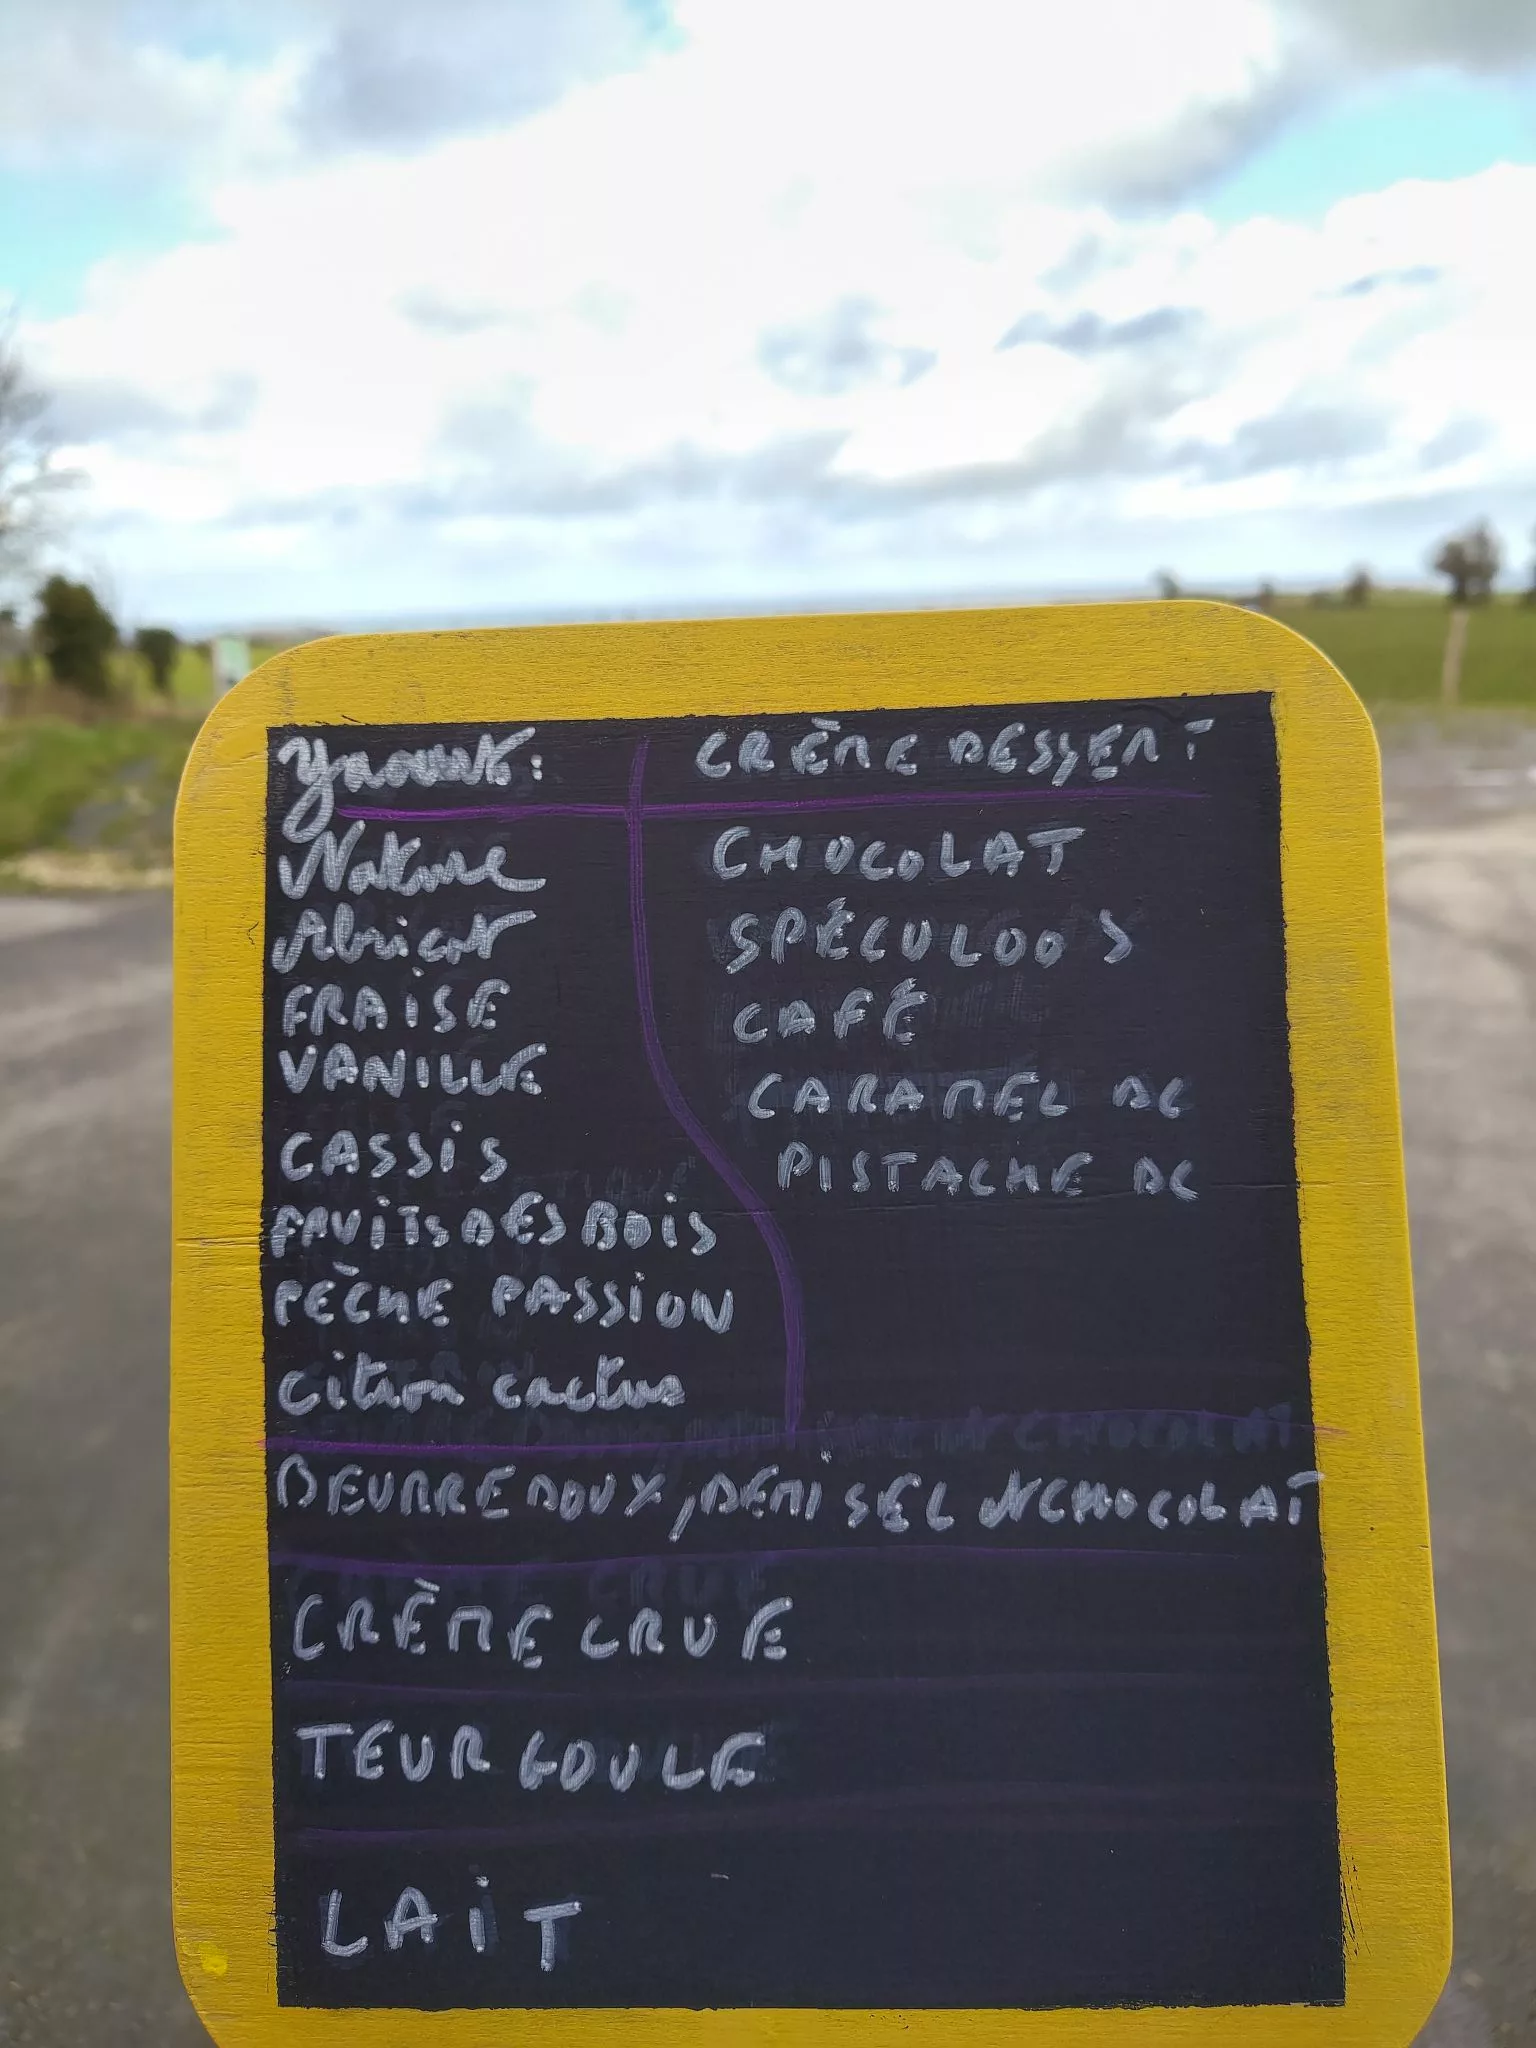 Yaourt:
Nature
Abricot
FRAiSE
VANILLE
CASSiS
FRUiTS DES BOiS
PÈCHE PASSION
citron cactus
CRÈME DESSERT
CHOCOLAT
SPÉCULOOS
CAFÉ
CARAMEL DC
PISTACHE DC
BEURRE DOUX, DEMI SEL CHOCOLAT
CRÈME CRUE
TEURGOULE
LAiT